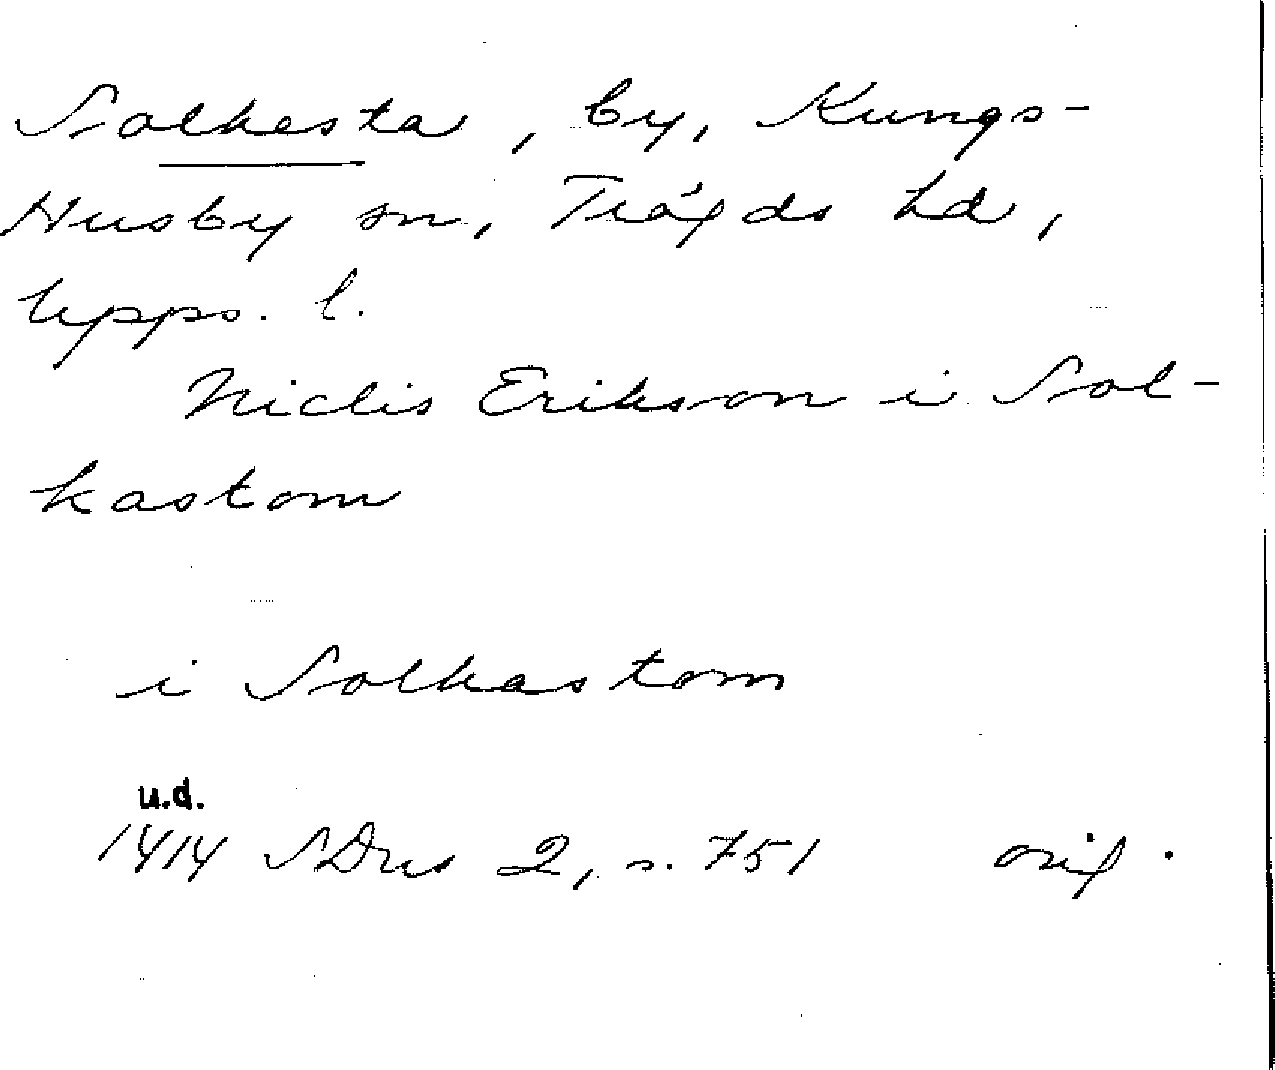 Solkesta, by, Kungs-
Husby sn, Trögds hd,
Upps. l.
Niclis Erikson i Sol-
kastom
i Solkastom
u.d.
1414 SDns 2, s. 751 orig.